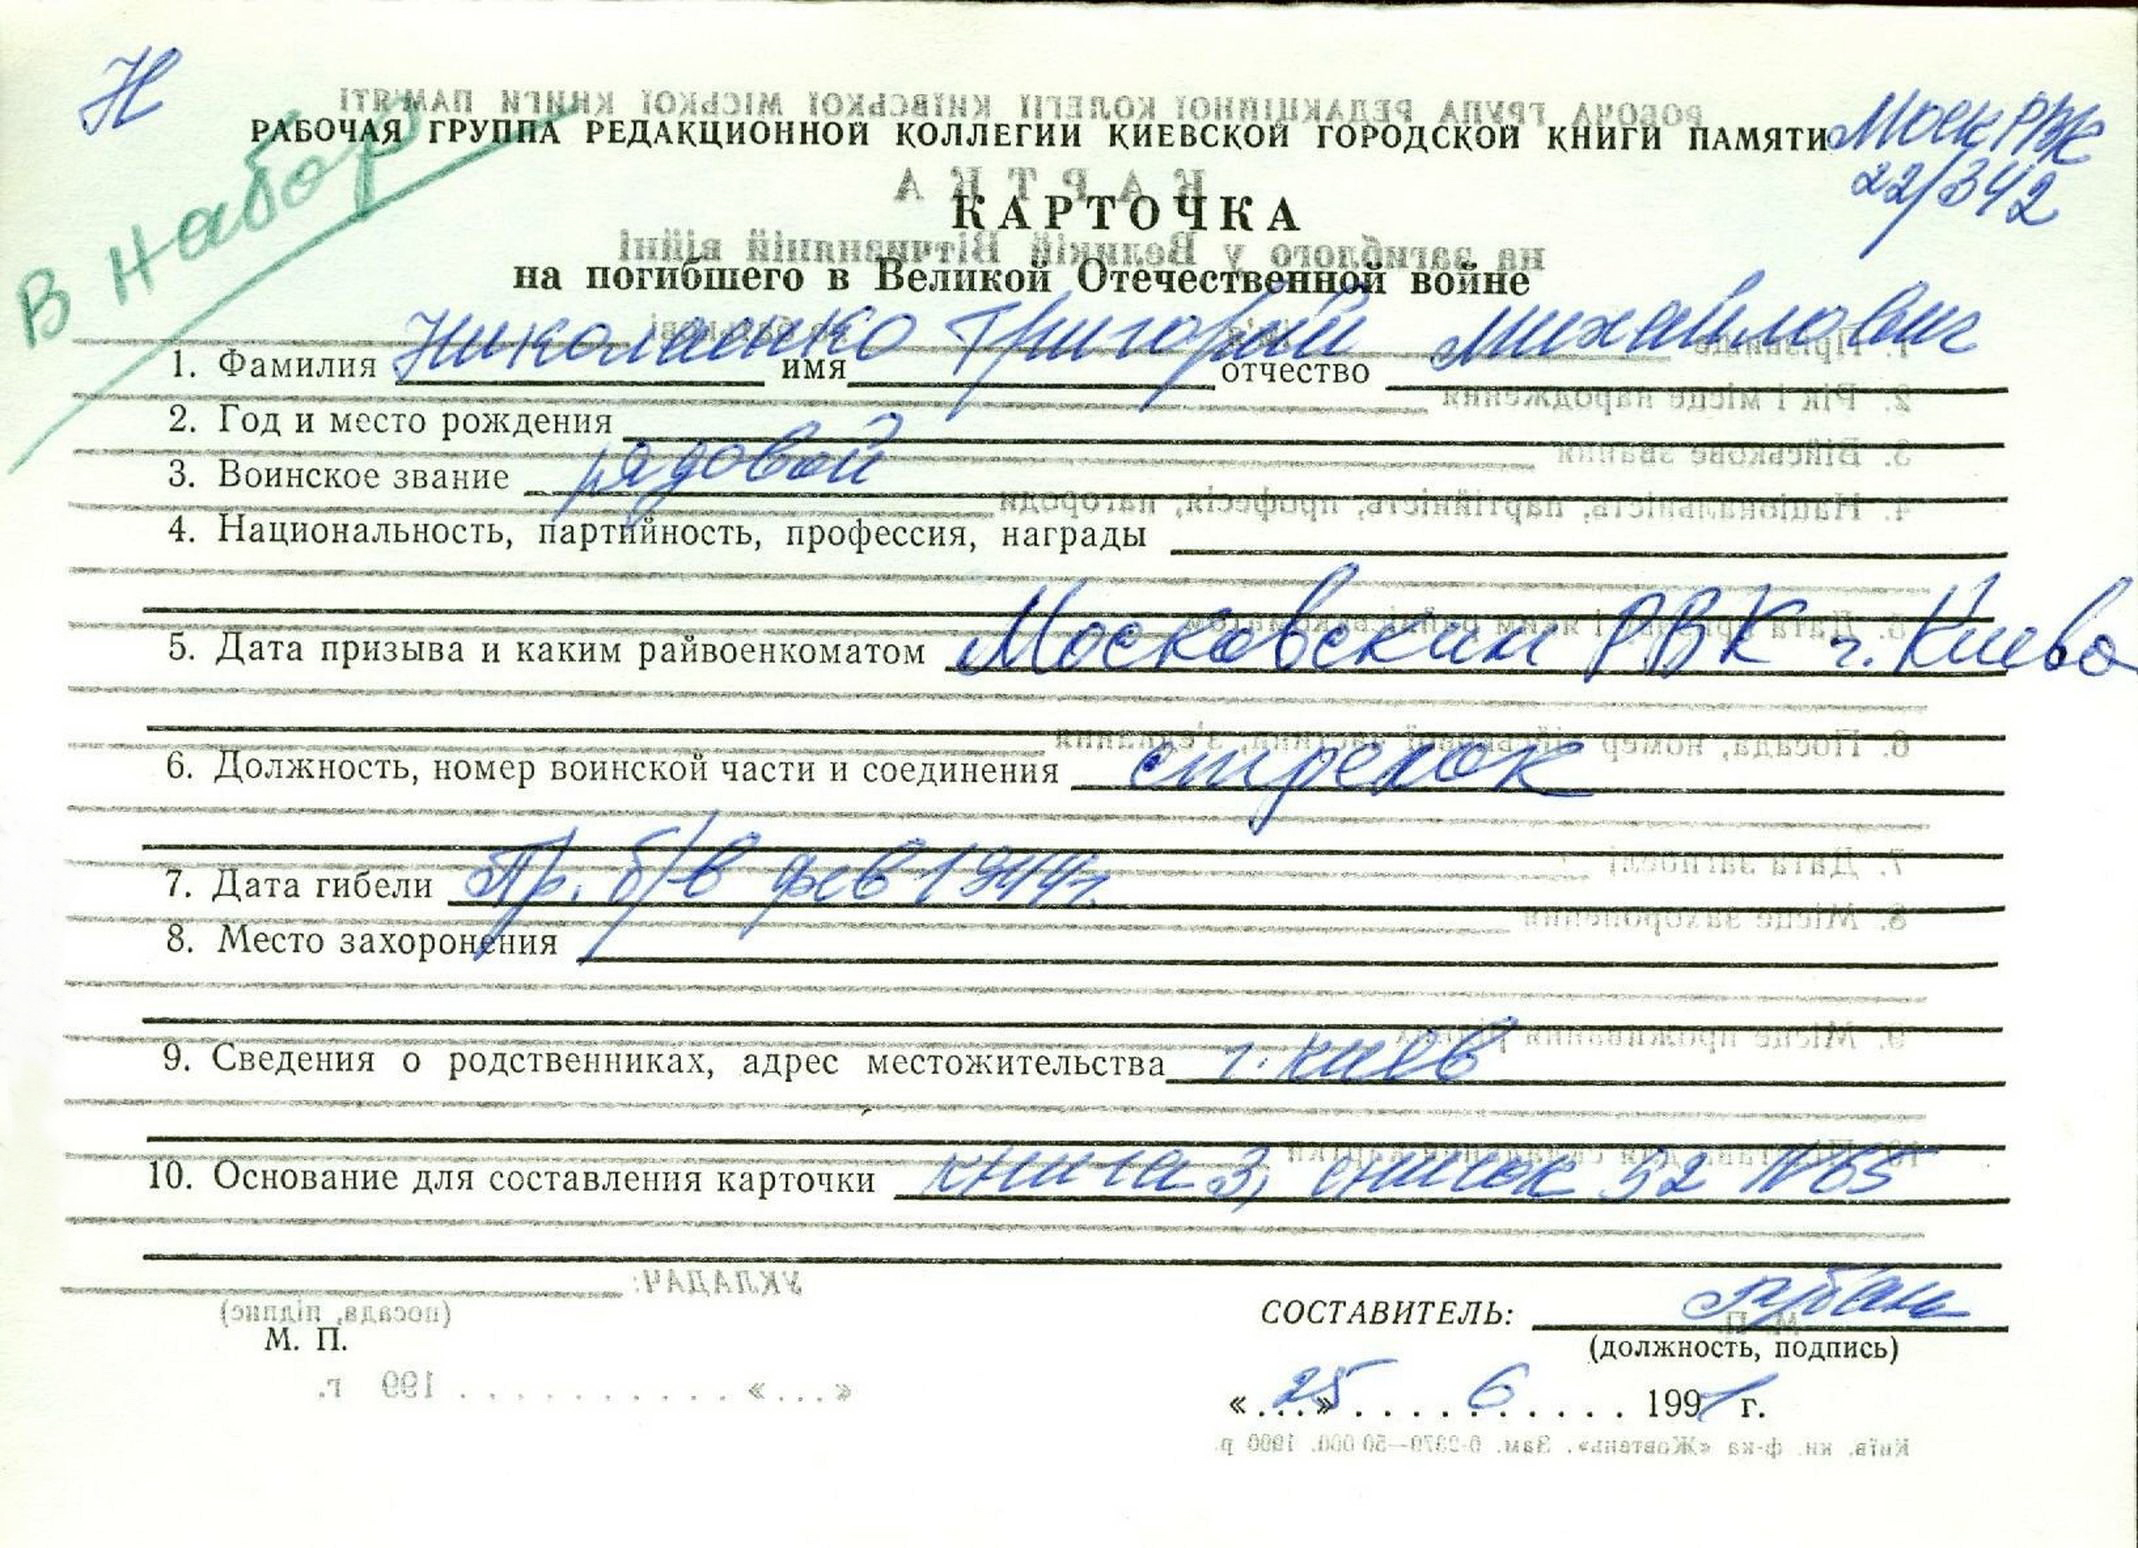 Н
МоскРВК
22/342
В набор
РАБОЧАЯ ГРУППА РЕДАКЦИОННОЙ КОЛЛЕГИИ КИЕВСКОЙ ГОРОДСКОЙ КНИГИ ПАМЯТИ
КАРТОЧКА
на погибшего в Великой Отечественной войне
1. Фамилия Николаенко имя Григорий отчество Михайлович
2. Год и место рождения
3. Воинское звание рядовой
4. Национальность, партийность, профессия, награды
5. Дата призыва и каким райвоенкоматом Московским РВК г. Киева
6. Должность, номер воинской части и соединения стрелок
7. Дата гибели Пр. б/в фев 1944г.
8. Место захоронения
9. Сведения о родственниках, адрес местожительства г. Киев
10. Основание для составления карточки книга 3, список 52 №65
СОСТАВИТЕЛЬ:
М. П.
(должность, подпись)
«...25» . . . . 6 . . . . . . 1991 г.